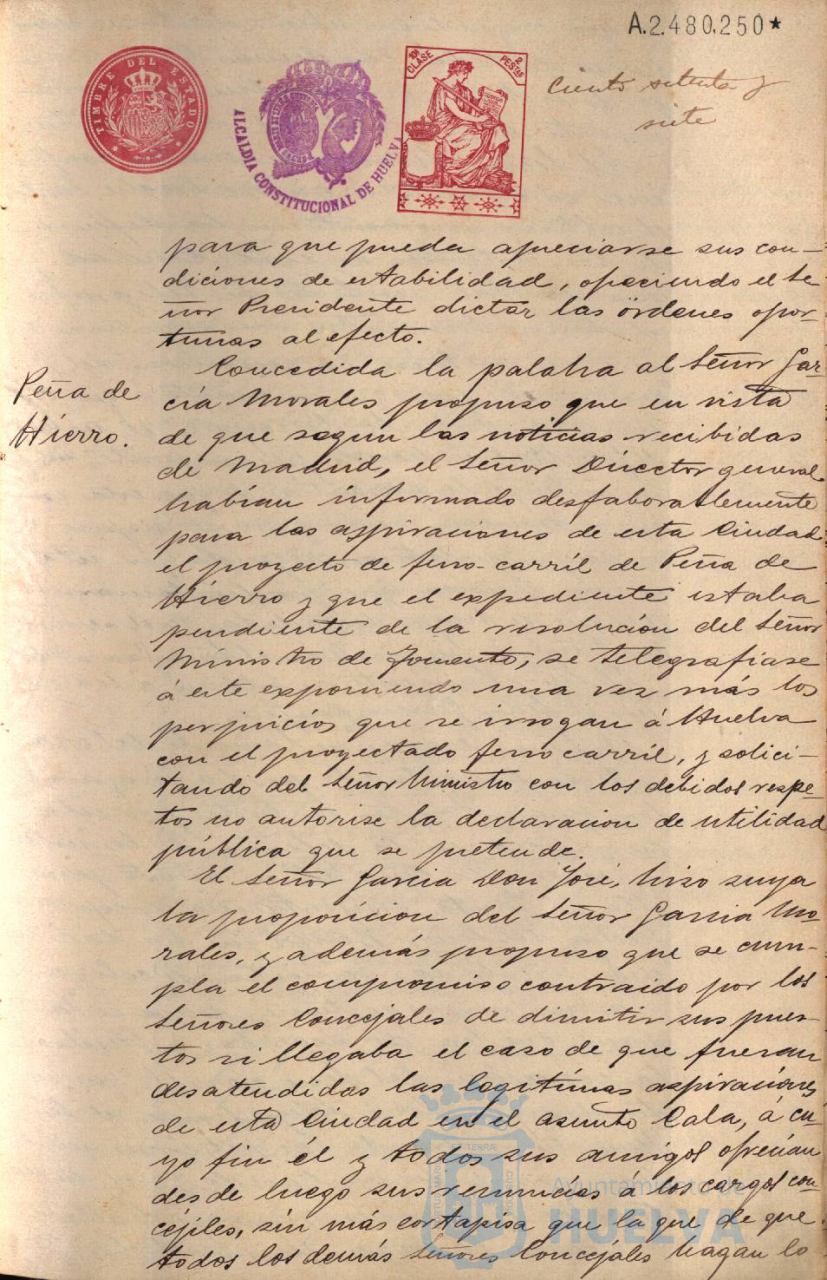 A.2.480.250★
TIMBRE DEL ESTADO
ALCALDIA CONSTITUCIONAL DE HUELVA
10ª CLASE
2 PESTAS
Ciento setenta y
siete
para que pueda apreciarse sus con-
diciones de estabilidad, ofreciendo el Se-
ñor Presidente dictar las órdenes opor-
tunas al efecto.
Peña de
Hierro.
Concedida la palabra al Señor Gar-
cía Morales propuso que en vista
de que segun las noticias recibidas
de Madrid, el Señor Director general
habían informado desfaborablemente
para las aspiraciones de esta Ciudad
el proyecto de ferro-carril de Peña de
Hierro y que el expediente estaba
pendiente de la resolución del Señor
Ministro de Fomento, se telegrafiase
á este exponiendo una vez más los
perjuicios que se irrogan á Huelva
con el proyectado ferro carril, y solici-
tando del Señor Ministro con los debidos respe-
tos no autorise la declaracion de utilidad
pública que se pretende.
El Señor Garcia Don José, hizo suya
la proposicion del Señor Garcia Mo-
rales, y además propuso que se cum-
pla el compromiso contraido por los
Señores Concejales de dimitir sus pues-
tos si llegaba el caso de que fueran
desatendidas las legitimas aspiraciones
de esta Ciudad en el asunto Cala, á cu-
yo fin él y todos sus amigos ofrecian
desde luego sus renuncias á los cargos con-
cejiles, sin más cortapisa que la que de que
todos los demás Señores Concejales hagan lo
Ayuntamiento de
HUELVA